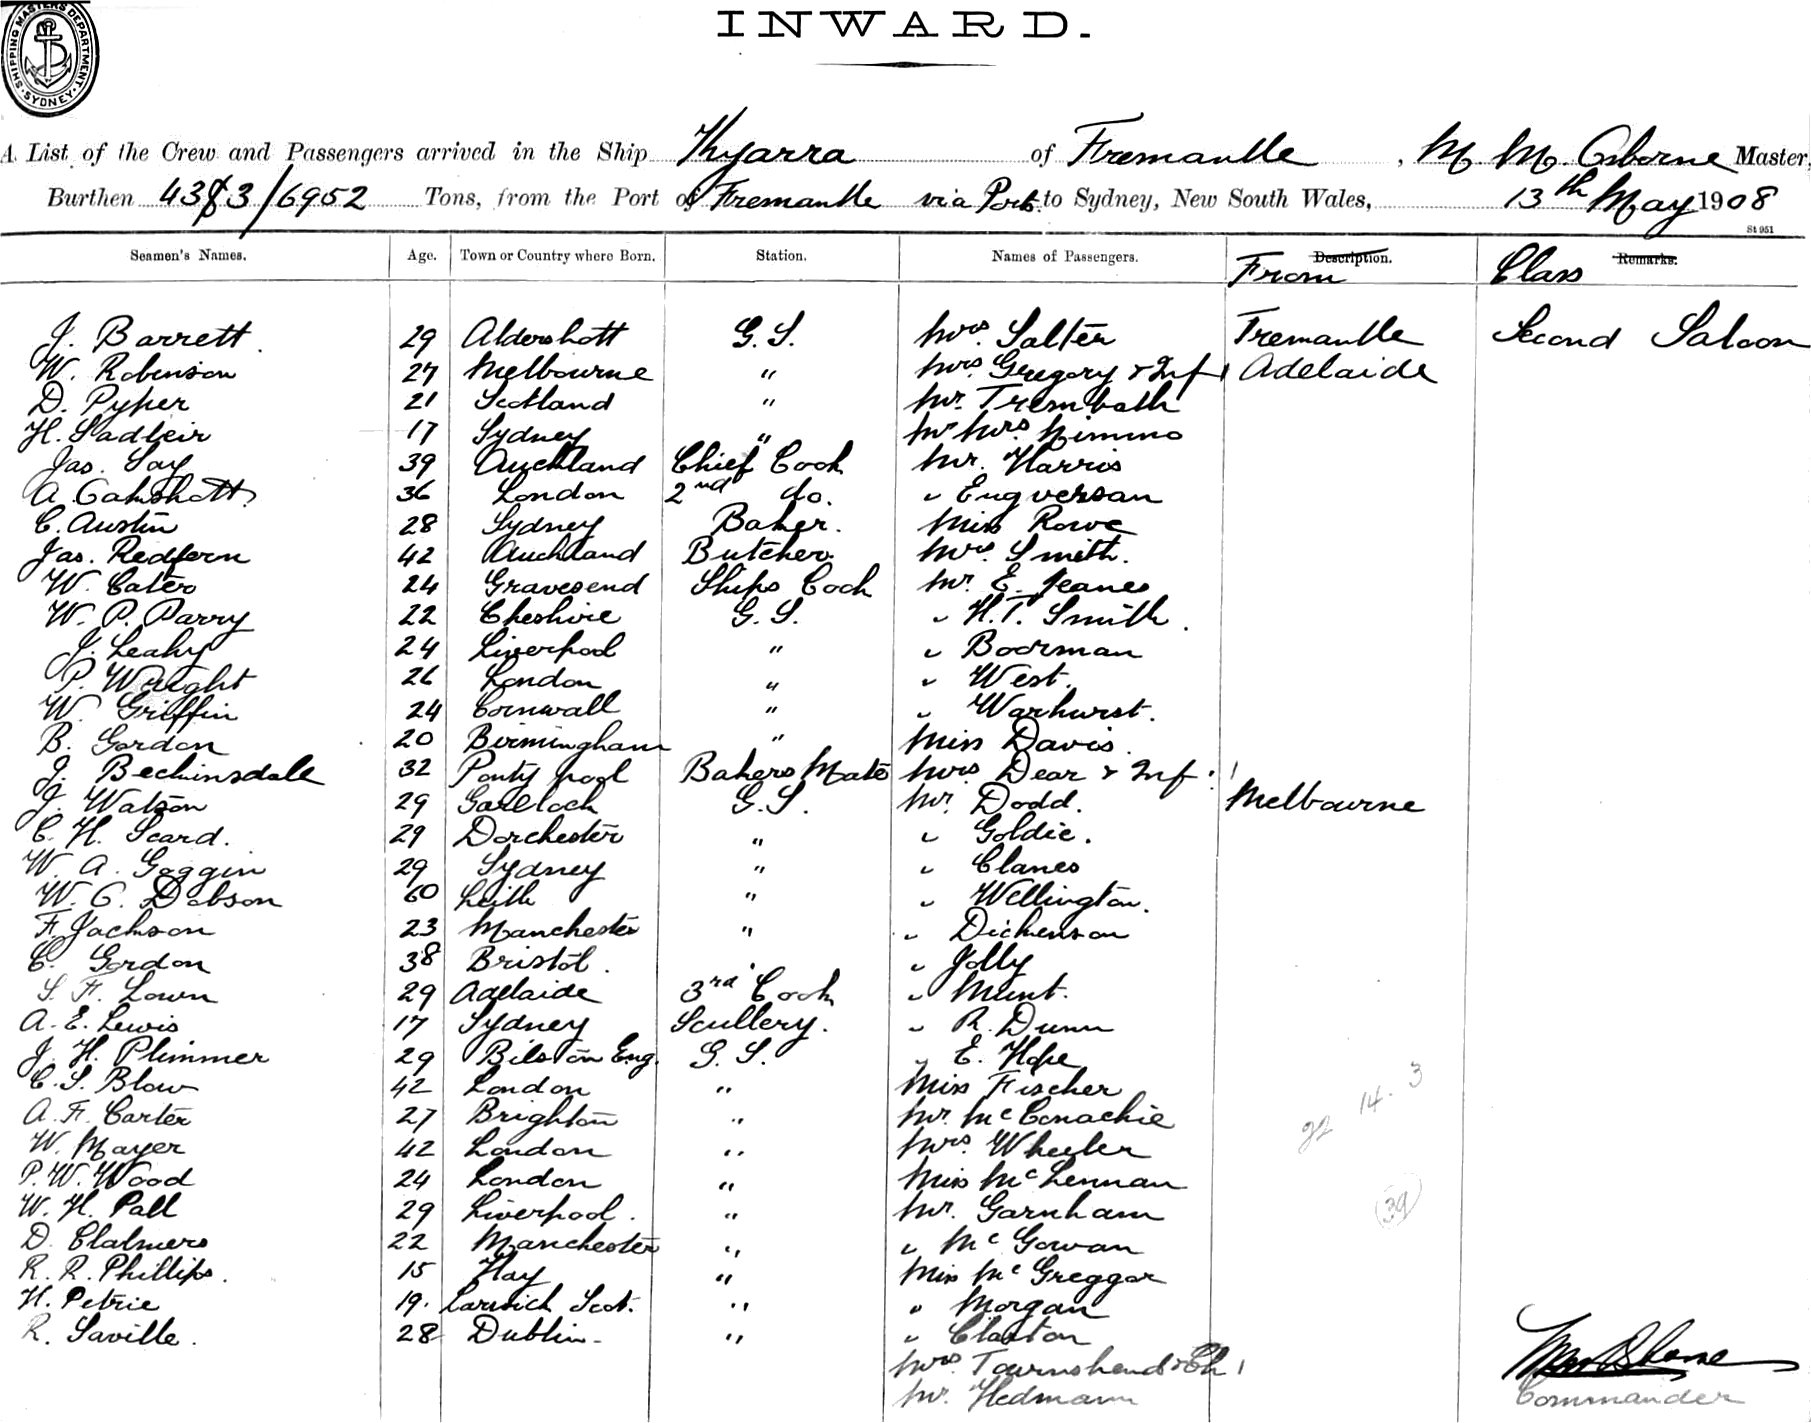 SHIPPING MASTERS DEPARTMENT. SYDNEY.
INWARD.
A List of the Crew and Passengers arrived in the Ship Kyarra of Fremantle, M M. Osborne Master,
Burthen 4383/6952 Tons, from the Port of Fremantle via Ports to Sydney, New South Wales, 13th May 1908
St 951
Seamen's Names. Age. Town or Country where Born. Station. Names of Passengers. Description. Remarks.
From Class
J. Barrett. 29 Aldershott G.S. Mrs. Salter Fremantle Second Saloon
W. Robinson 27 Melbourne " Mrs. Gregory & Inf 1 Adelaide
D. Pyper 21 Scotland " Mr. Trembath
H. Sadleir 17 Sydney " Mr Mrs. Nimmo
Jas. Say 39 Auckland Chief Cook Mr. Harris
A. 36 London 2nd do. " Engversan
C. Austin 28 Sydney Baker. Miss Rowe
Jas. Redfern 42 Auckland Butcher. Mrs. Smith.
W. Cater 24 Gravesend Ships Cook Mr. E. Jeanes
W. P. Parry 22 Cheshire G.S. " H.T. Smith.
J. Leahy 24 Liverpool " " Boorman
P. Waight 26 London " " West.
W. Griffin 24 Cornwall " " Warhurst.
B. Gordon 20 Birmingham " Miss Davis.
J. Beckinsdale 32 Ponty pool Bakers Mate Mrs. Dear & Inf. 1
J. Watson 29 G.S. Mr. Dodd. Melbourne
C. H. Scard. 29 Dorchester " " Goldie.
W. A. Goggin 29 Sydney " " Clanes
W. C. Dobson 60 Leith " " Wellington.
F. Jackson 23 Manchester " " Dickenson
C. Gordon 38 Bristol. " " Jolly
S. F. Lown 29 Adelaide 3rd Cook " Munt.
A. E. Lewis 17 Sydney Scullery. " R. Dunn
J. H. Plimmer 29 Bilston Eng. G.S. " E. Hope
C. S. Blow 42 London " Miss Fischer
A. F. Carter 27 Brighton " Mr. McConachie
W. Mayer 42 London " Mrs. Wheeler
P. W. Wood 24 London " Miss McLennan
W. H. Pall 29 Liverpool. " Mr. Garnham
D. Clalmers 22 Manchester " " McGowan
R. R. Phillips. 15 Hay " Miss McGreggor
H. Petrie 19. Larwick Scot. " " Morgan
R. Saville. 28 Dublin " " Claxton
Mrs. Townshend & Ch 1
Mr. Hedmann
14. 3
39
Commander